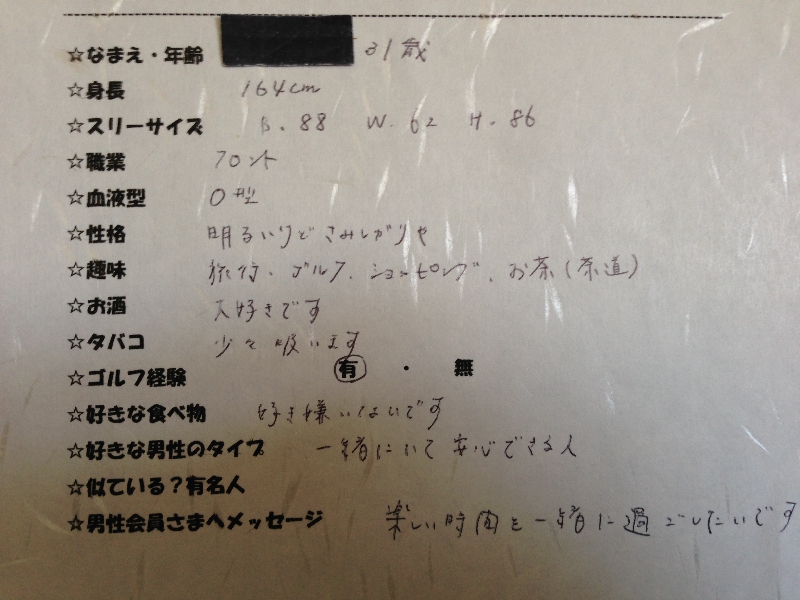 ☆なまえ・年齢 31歳
☆身長 164cm
☆スリーサイズ B.88 W.62 H.86
☆職業 フロント
☆血液型 O型
☆性格 明るいけどさみしがりや
☆趣味 旅行、ゴルフ、ショッピング、お茶(茶道)
☆お酒 大好きです
☆タバコ 少々吸います
☆ゴルフ経験 有・無
☆好きな食べ物 好き嫌いないです
☆好きな男性のタイプ 一緒にいて安心できる人
☆似ている?有名人
☆男性会員さまへメッセージ 楽しい時間を一緒に過ごしたいです